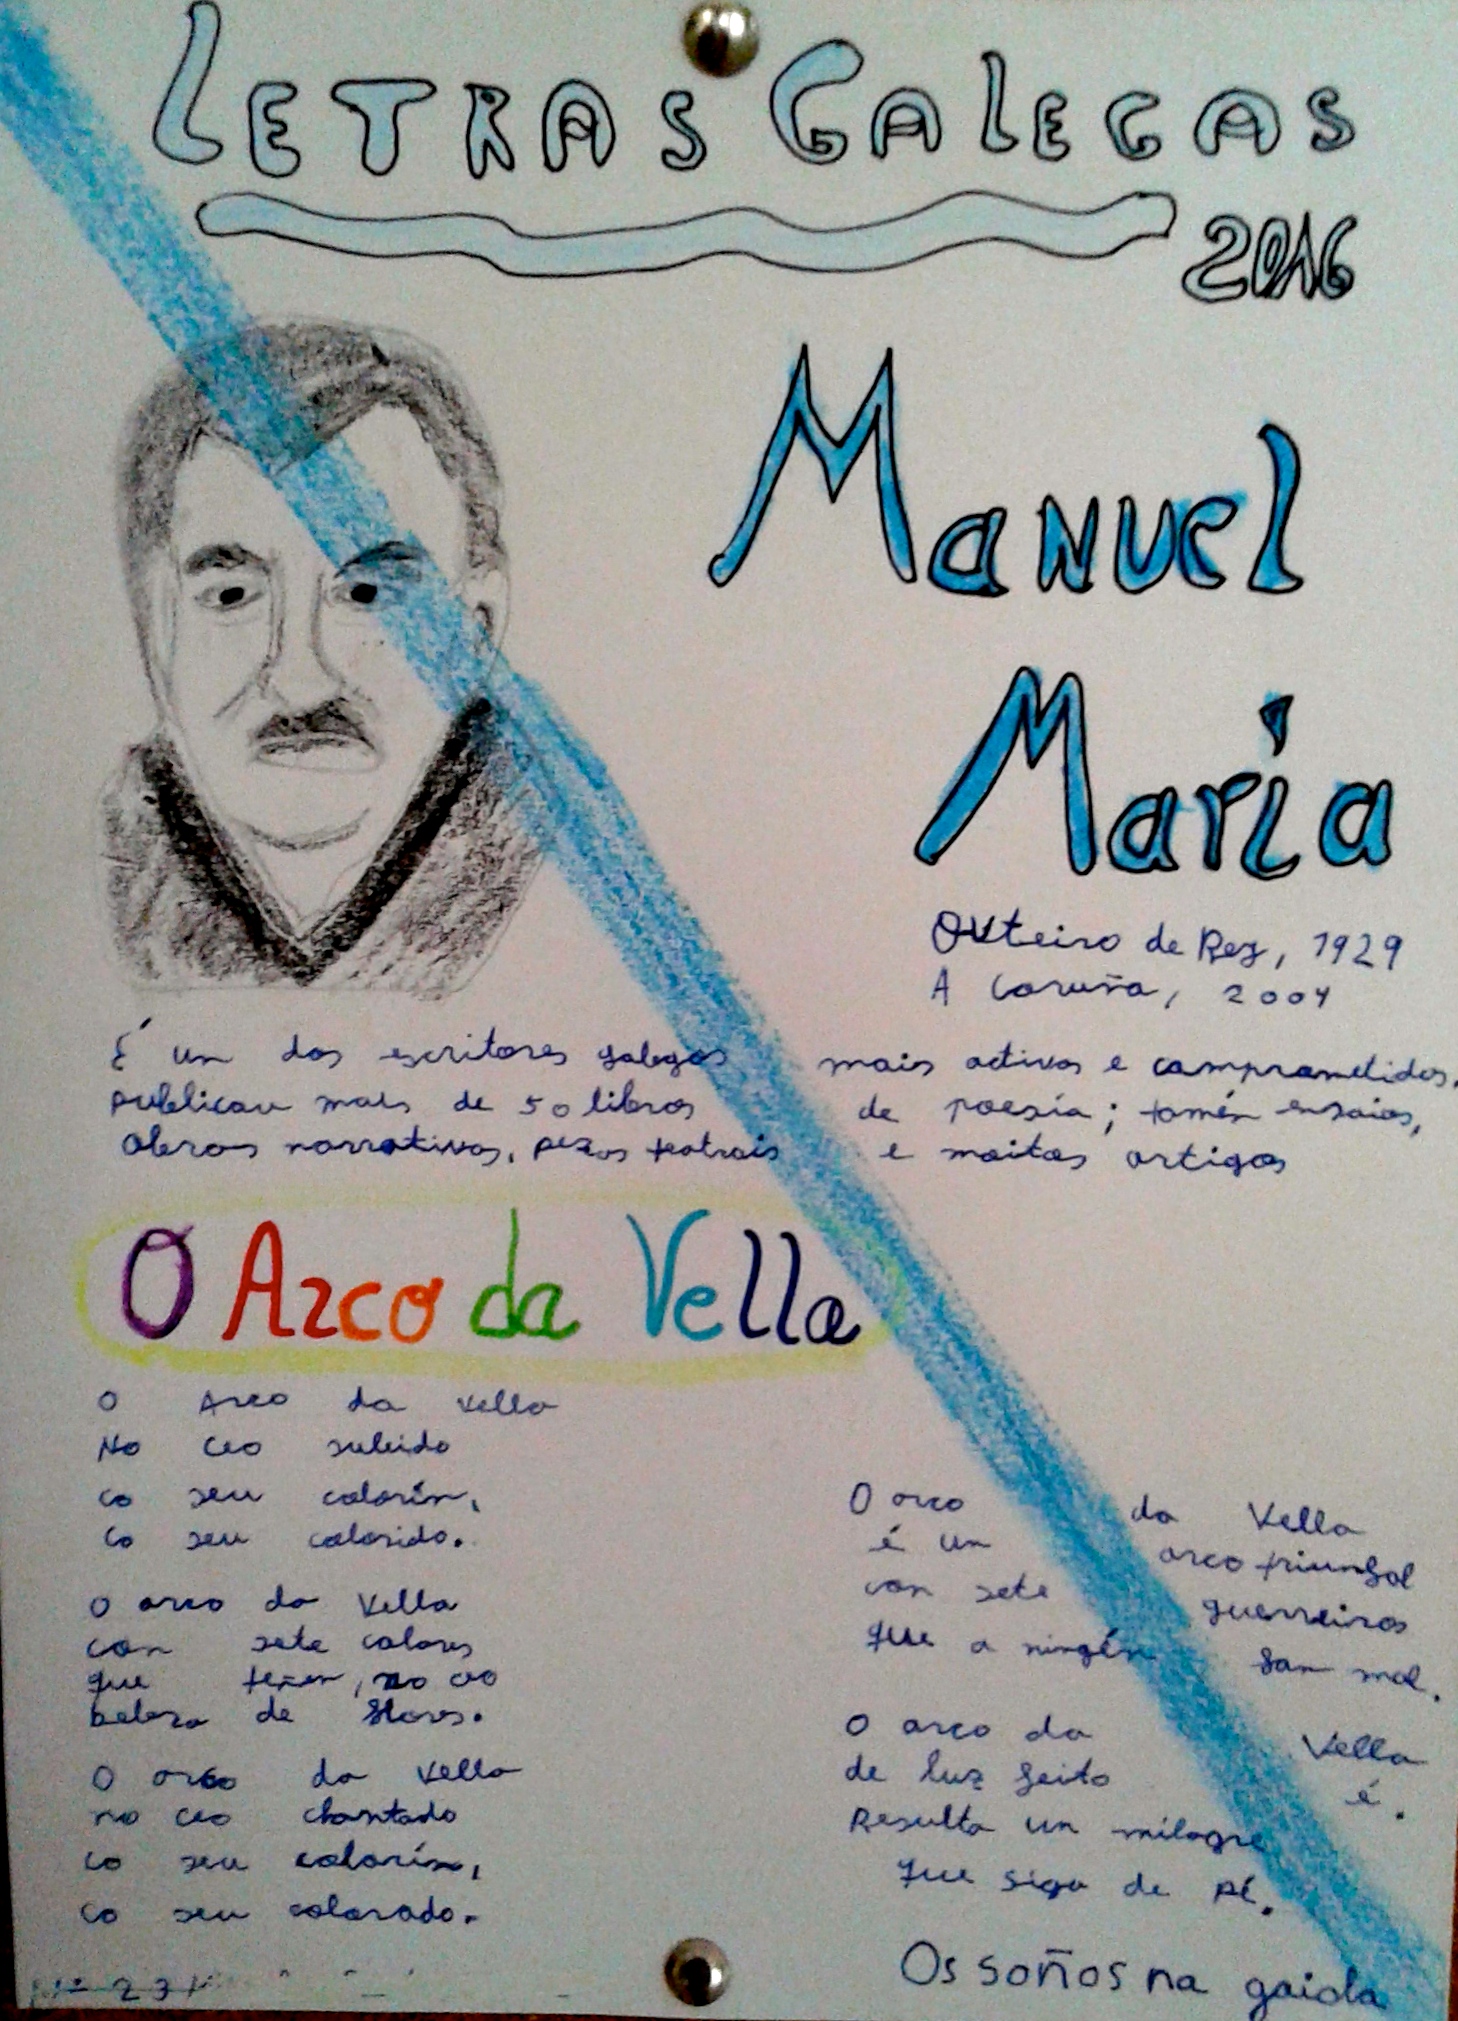 LETRAS GALEGAS
2016
Manuel
María
Outeiro de Rey, 1929
A Coruña, 2004
É un dos escritores galegos mais activos e comprometidos,
publicou mais de 50 libros de poesía; tamén ensaios,
obras narrativas, pezas teatrais e moitos artigos
O Arco da Vella
O Arco da Vella
No ceo subido
co seu colorín,
Co seu colorido.
O arco da Vella
con sete colores
que teñen, no ceo
beleza de flores.
O arco da Vella
no ceo chantado
co seu colorín,
co seu colorado.
O arco da Vella
é un arco triunfal
con sete guerreiros
que a ninguén fan mal.
O arco da Vella
de luz feito é.
Resulta un milagre
que siga de pé.
Os soños na gaiola